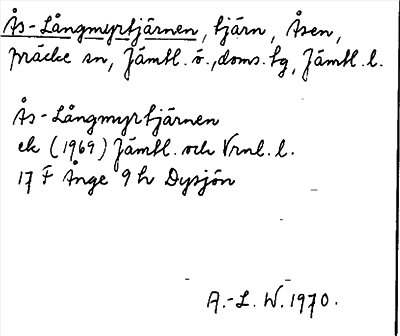 Ås-Långmyrtjärnen, tjärn, Åsen,
Bräcke sn, Jämtl. ö., doms. tg, Jämtl. l.
Ås-Långmyrtjärnen
ek (1969) Jämtl. och Vrnl. l.
17 F Ånge 9 h Dysjön
A.-L. W. 1970.